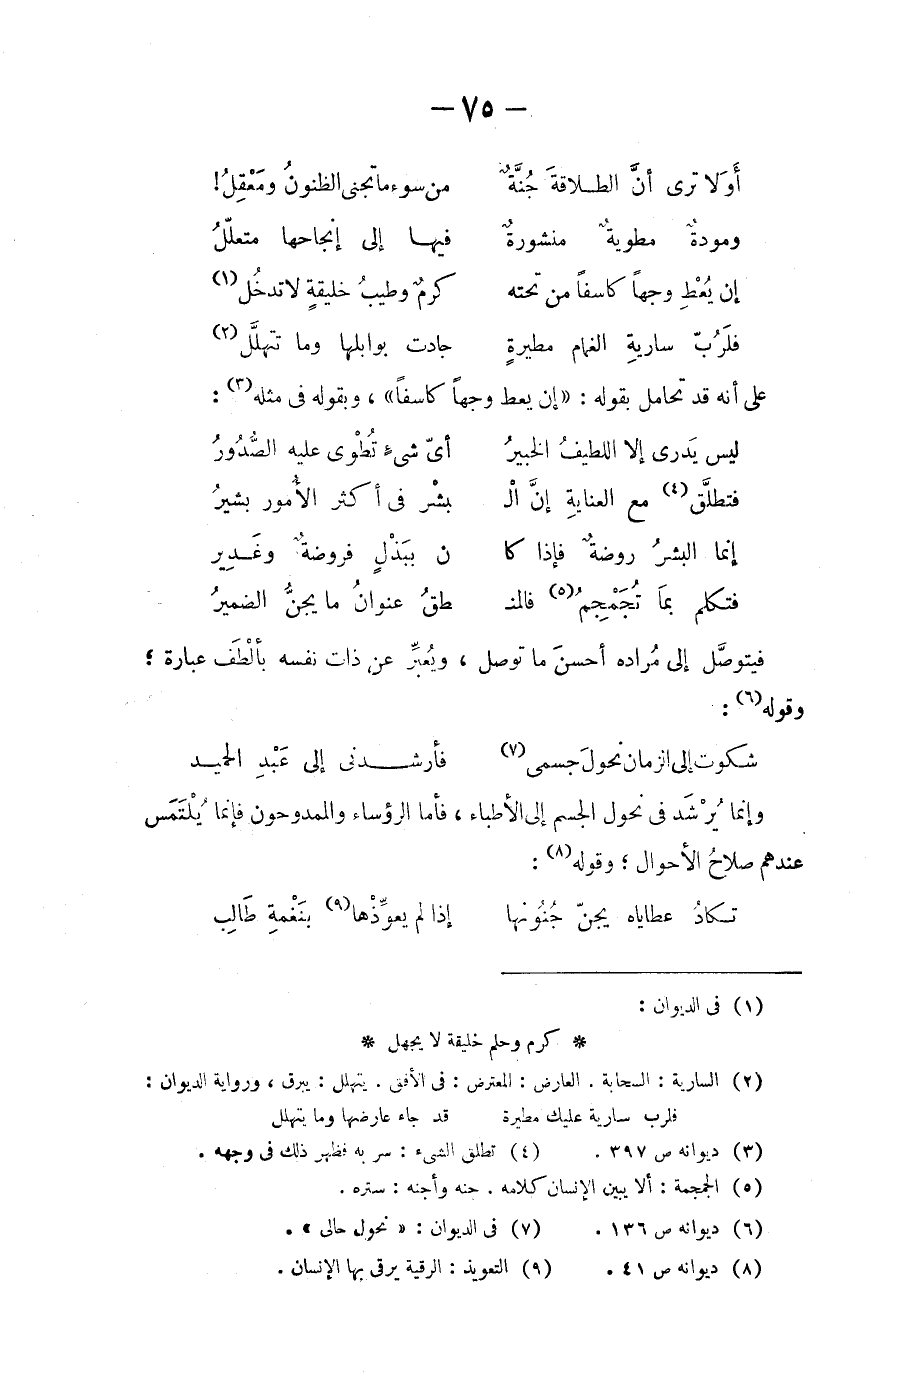 — ٧٥ —
أَوَلا ترى أنَّ الطلاقةَ جُنَّةٌ من سوء ما تجنى الظنونُ ومَعْقِلُ!
ومودةٌ مطويةٌ منشورةٌ فيها إلى إنجاحها متعلّلُ
إن يُعْطِ وجهاً كاسفاً من تحته كرمٌ وطيبُ خليقةٍ لا تدخُل(١)
فلَرُبّ ساريةِ الغمام مطيرةٍ جادت بوابلها وما تتهلَّل(٢)
على أنه قد تحامل بقوله : «إن يعط وجهاً كاسفاً» ، وبقوله فى مثله(٣) :
ليس يَدرى إلا اللطيفُ الخبيرُ أىّ شىءٍ تُطْوى عليه الصُّدُورُ
فتطلَّق(٤) مع العنايةِ إنَّ الْـ بِشْر فى أكثر الأُمور بشيرُ
إنما البشرُ روضةٌ فإذا كا ن ببَذْلٍ فروضةٌ وغَدِير
فتكلم بمَا تُجَمْجِمُ(٥) فالمنـ طقُ عنوانُ ما يجنُّ الضميرُ
فيتوصَّل إلى مُراده أحسنَ ما توصل ، ويُعبِّر عن ذات نفسه بألْطَف عبارة ؛
وقوله(٦) :
شكوت إلى الزمان نحولَ جسمى(٧) فأرشدنى إلى عَبْدِ الحميد
وإنما يُرْشَد فى نحول الجسم إلى الأطباء ، فأما الرؤساء والممدوحون فإنما يُلْتَمَس
عندهم صلاحُ الأحوال ؛ وقوله(٨) :
تكادُ عطاياه يجنّ جُنُونها إذا لم يعوِّذْها(٩) بنَغْمةِ طَالِب
(١) فى الديوان :
* كرم وحلم خليقة لا يجهل *
(٢) السارية : السحابة . العارض : المعترض : فى الأفق . يتهلل : يبرق ، ورواية الديوان :
فلرب سارية عليك مطيرة قد جاء عارضها وما يتهلل
(٣) ديوانه ص ٣٩٧ . (٤) تطلق الشىء : سر به فظهر ذلك فى وجهه .
(٥) الجمجمة : ألا يبين الإنسان كلامه . جنه وأجنه : ستره .
(٦) ديوانه ص ١٣٦ . (٧) فى الديوان : « نحول حالى » .
(٨) ديوانه ص ٤١ . (٩) التعويذ : الرقية يرقى بها الإنسان .